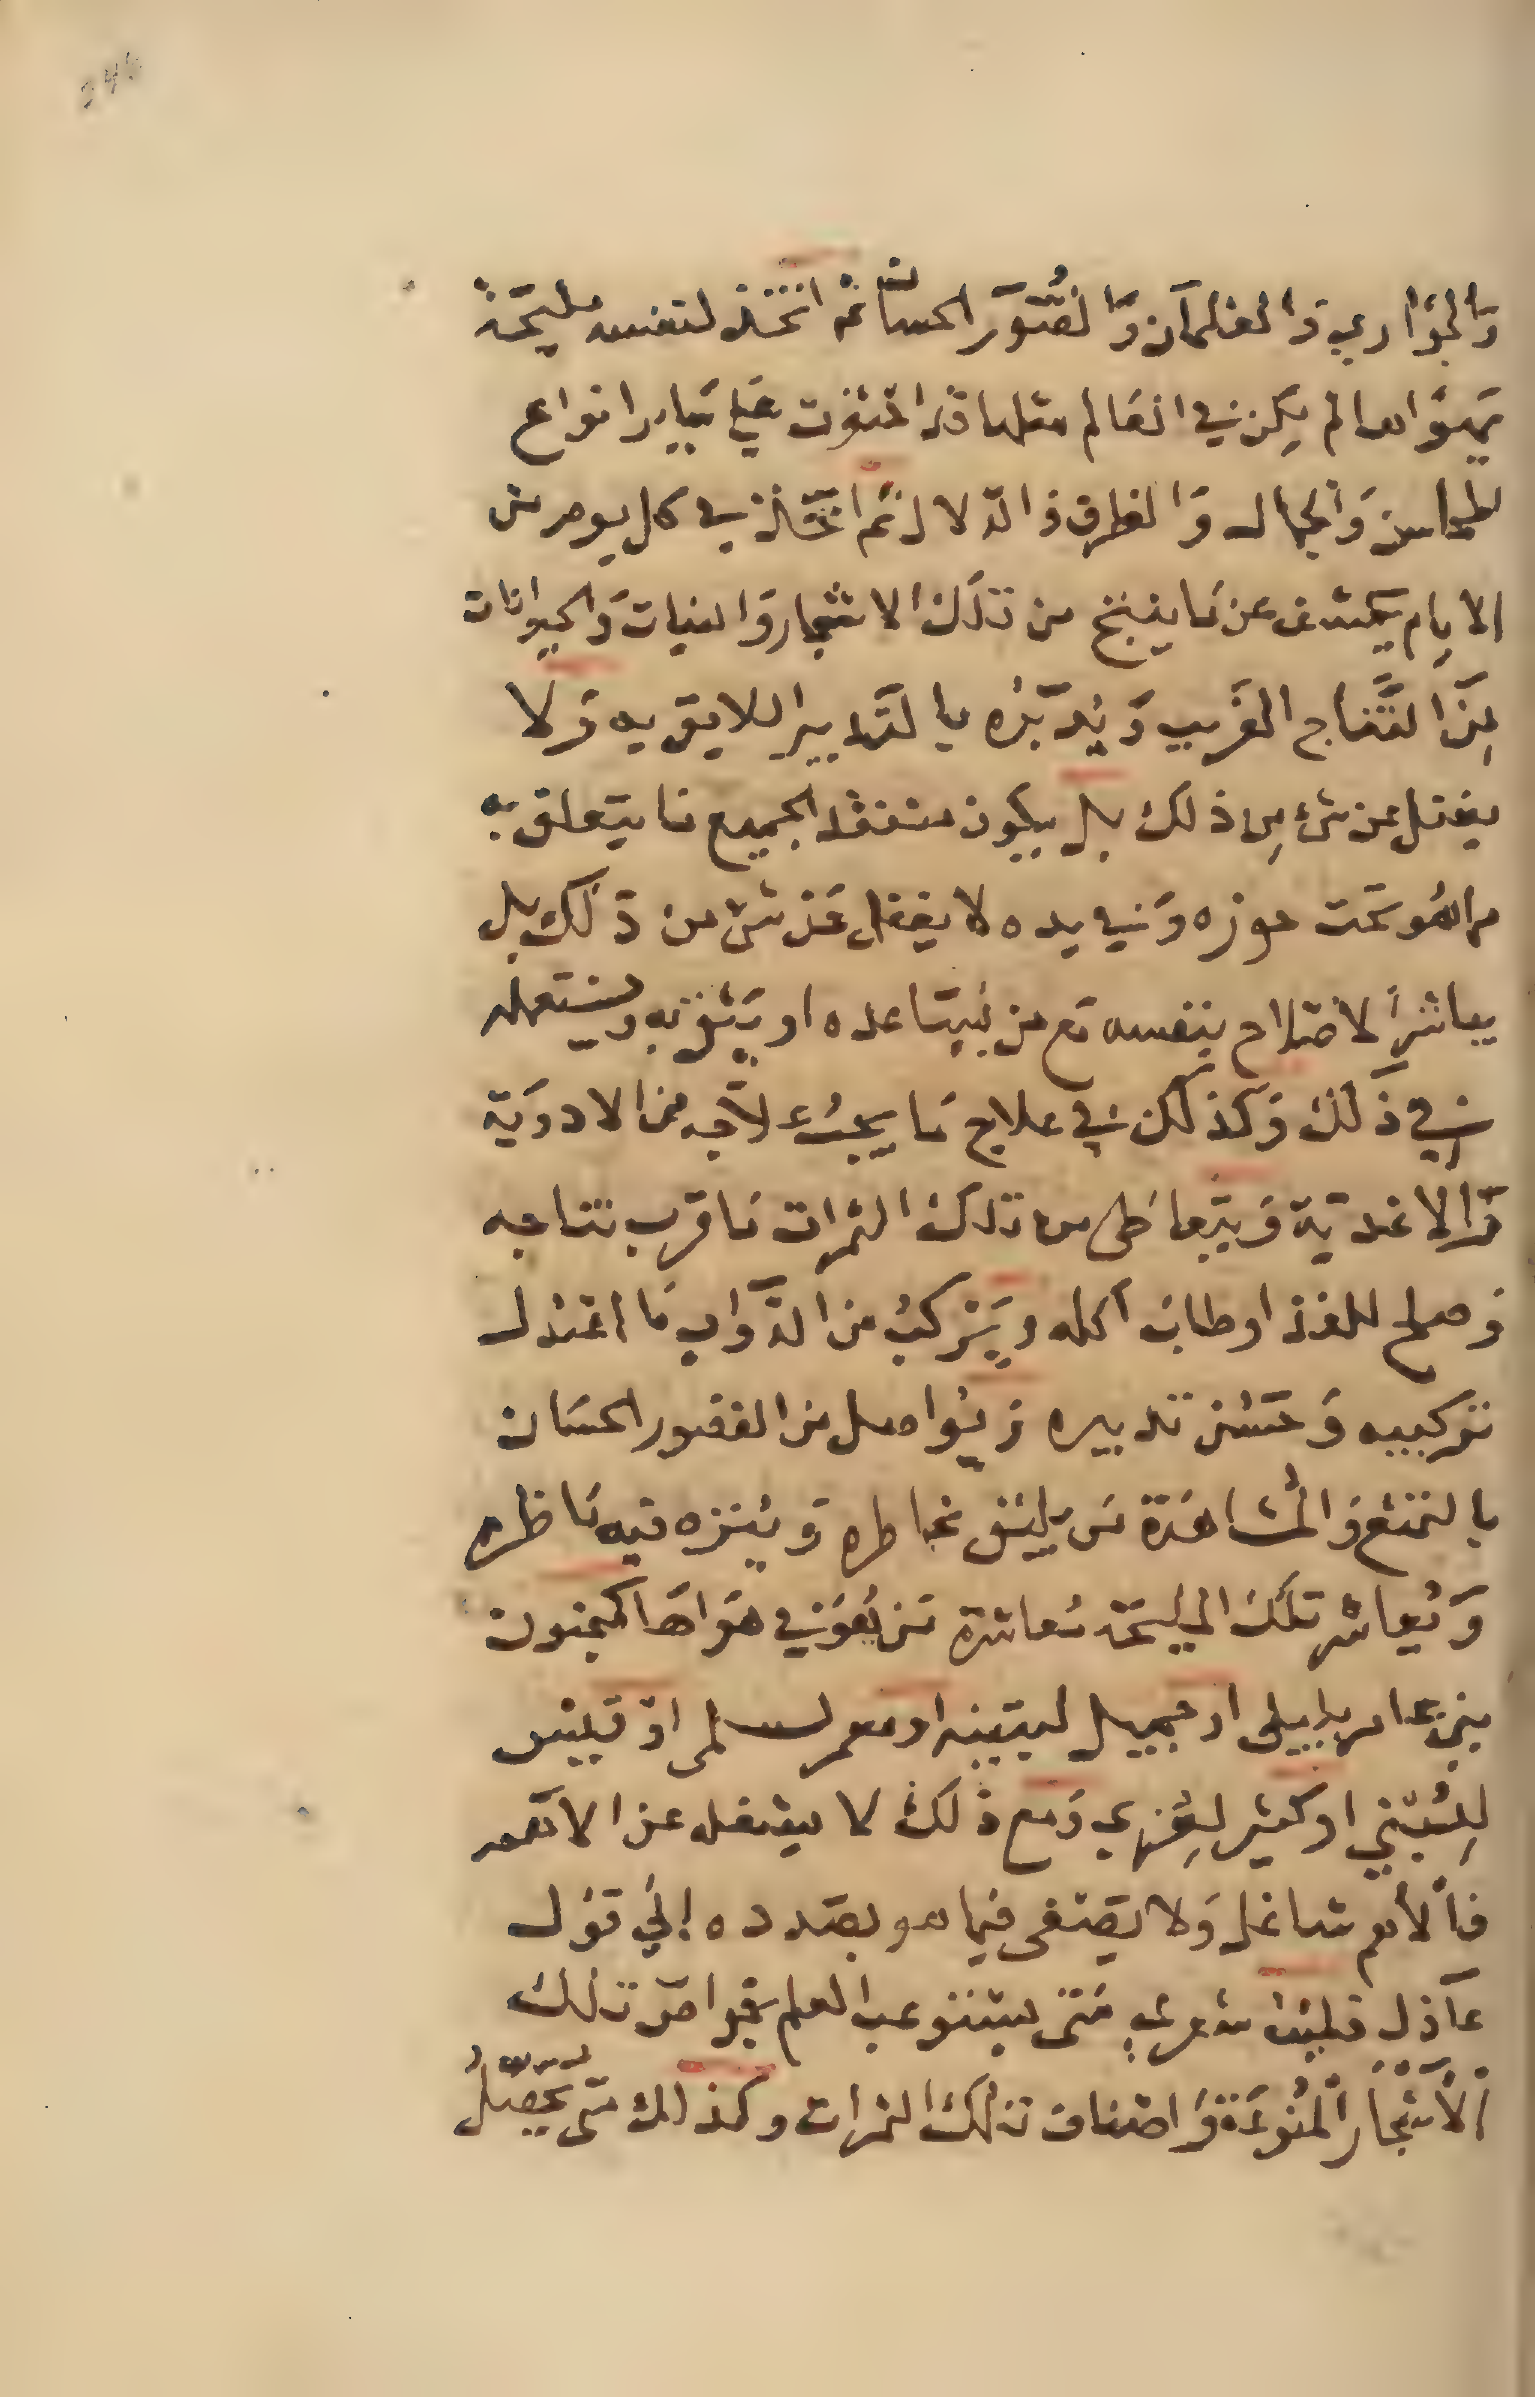 والجواري والغلمان والقصور الحسان ثم اتخذ لنفسه مليحة
يهواها لم يكن في العالم مثلها قد احتوت على سائر انواع
المحاسن والجمال والظرف والدلال ثم اتخاذ في كل يوم من
الايام يكشف عن ما ينتج من تلك الاشجار والنبات والحيوانات
من النتاج الغريب ويدبره بالتدبير اللايق به ولا
يغفل عن شئ من ذلك بل يكون متفقد الجميع ما يتعلق به
مما هو تحت حوزه وفي يده لا يغفل عن شئ من ذلك بل
يباشر الاصلاح بنفسه مع من يساعده او يثق به ويستعمله
في ذلك وكذلك في علاج ما يجئ لاجه من الادوية
والاغدية ويتعاطى من تلك الثمرات ما قرب نتاجه
وصلح للغذ اوطاب اكله ويركب من الدواب ما اعتدل
تركيبه وحسن تدبيره ويواصل من القصور الحسان
بالتمتع والمشاهدة من يليق بخاطره وينزه فيه ناظره
ويعاشر تلك المليحة معاشرة من يهوى في هواها كمجنون
بني عامر بليلى او جميل لبثينه او معمر لسلمى او قيس
للبنى او كثير لعزى ومع ذلك لا يشغله عن الاهم
فالأهم شاغل ولا يصغى فيما هو بصدده الي قول
عاذل فليت شعري متى يستوعب العلم بخواص تلك
الاشجار المنوعة واصناف تلك الثمرات وكذلك متى يحصل